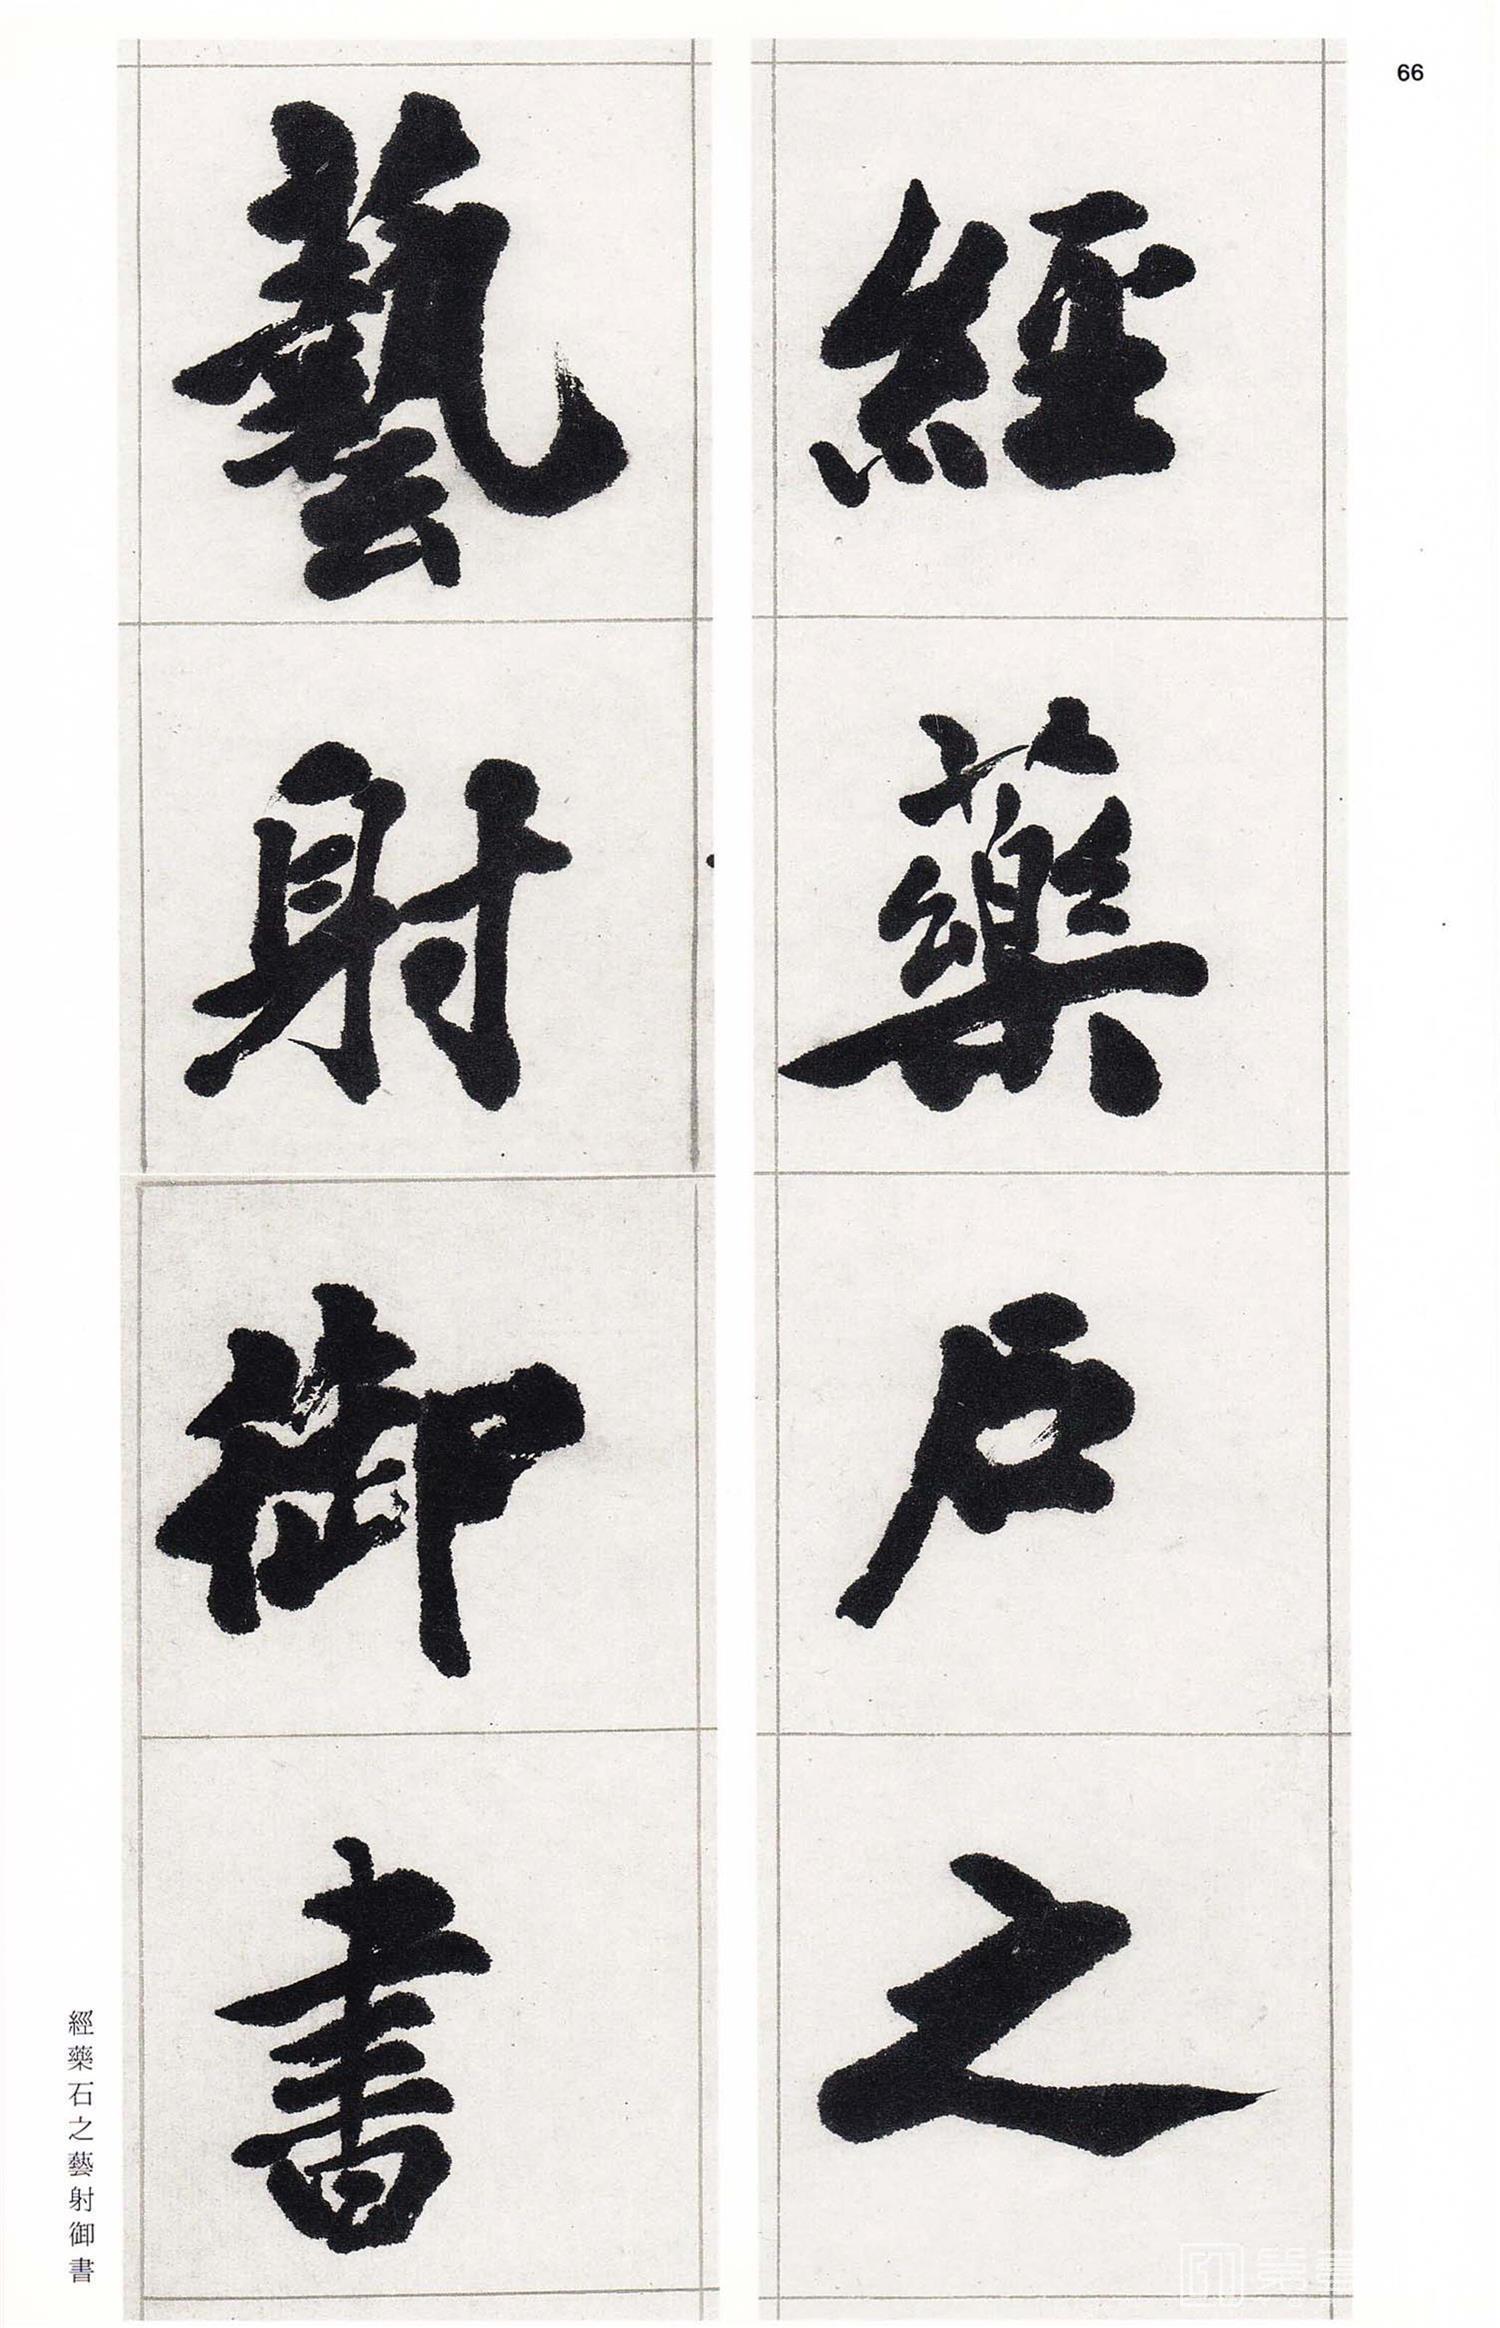 66
經藥石之
藝射御書
經藥石之藝射御書